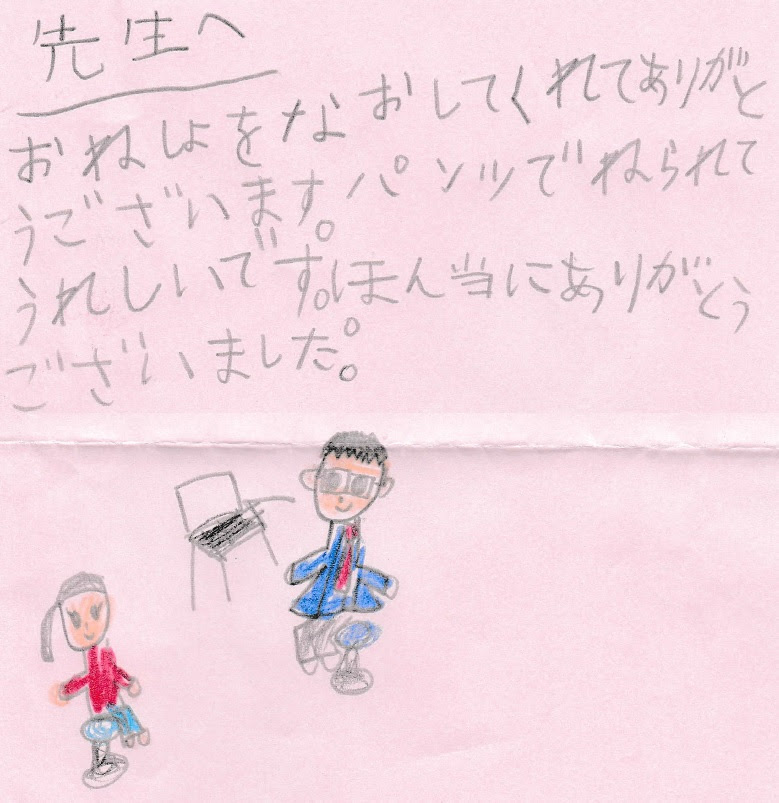 先生へ
おねしょをなおしてくれてありがと
うございます。パンツでねられて
うれしいです。ほん当にありがとう
ございました。